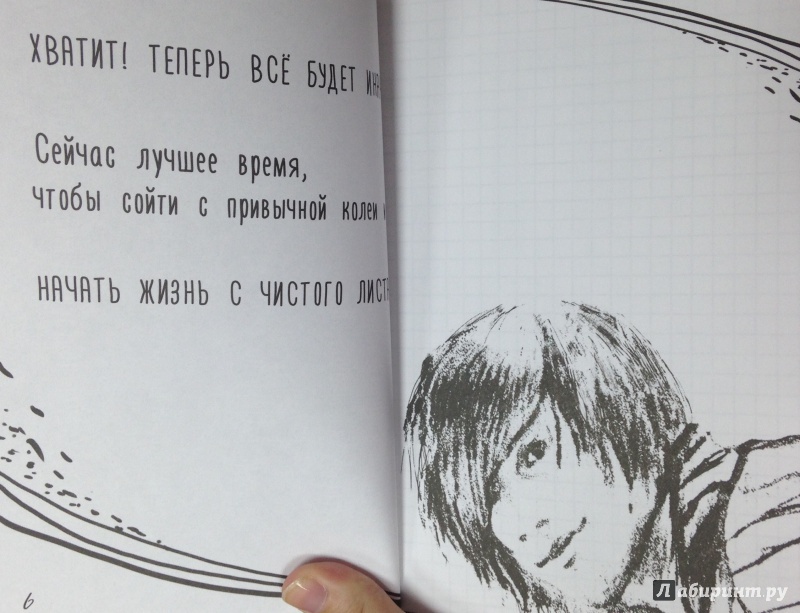 ХВАТИТ! ТЕПЕРЬ ВСЁ БУДЕТ
Сейчас лучшее время,
чтобы сойти с привычной колеи
НАЧАТЬ ЖИЗНЬ С ЧИСТОГО
6
Лабиринт.ру